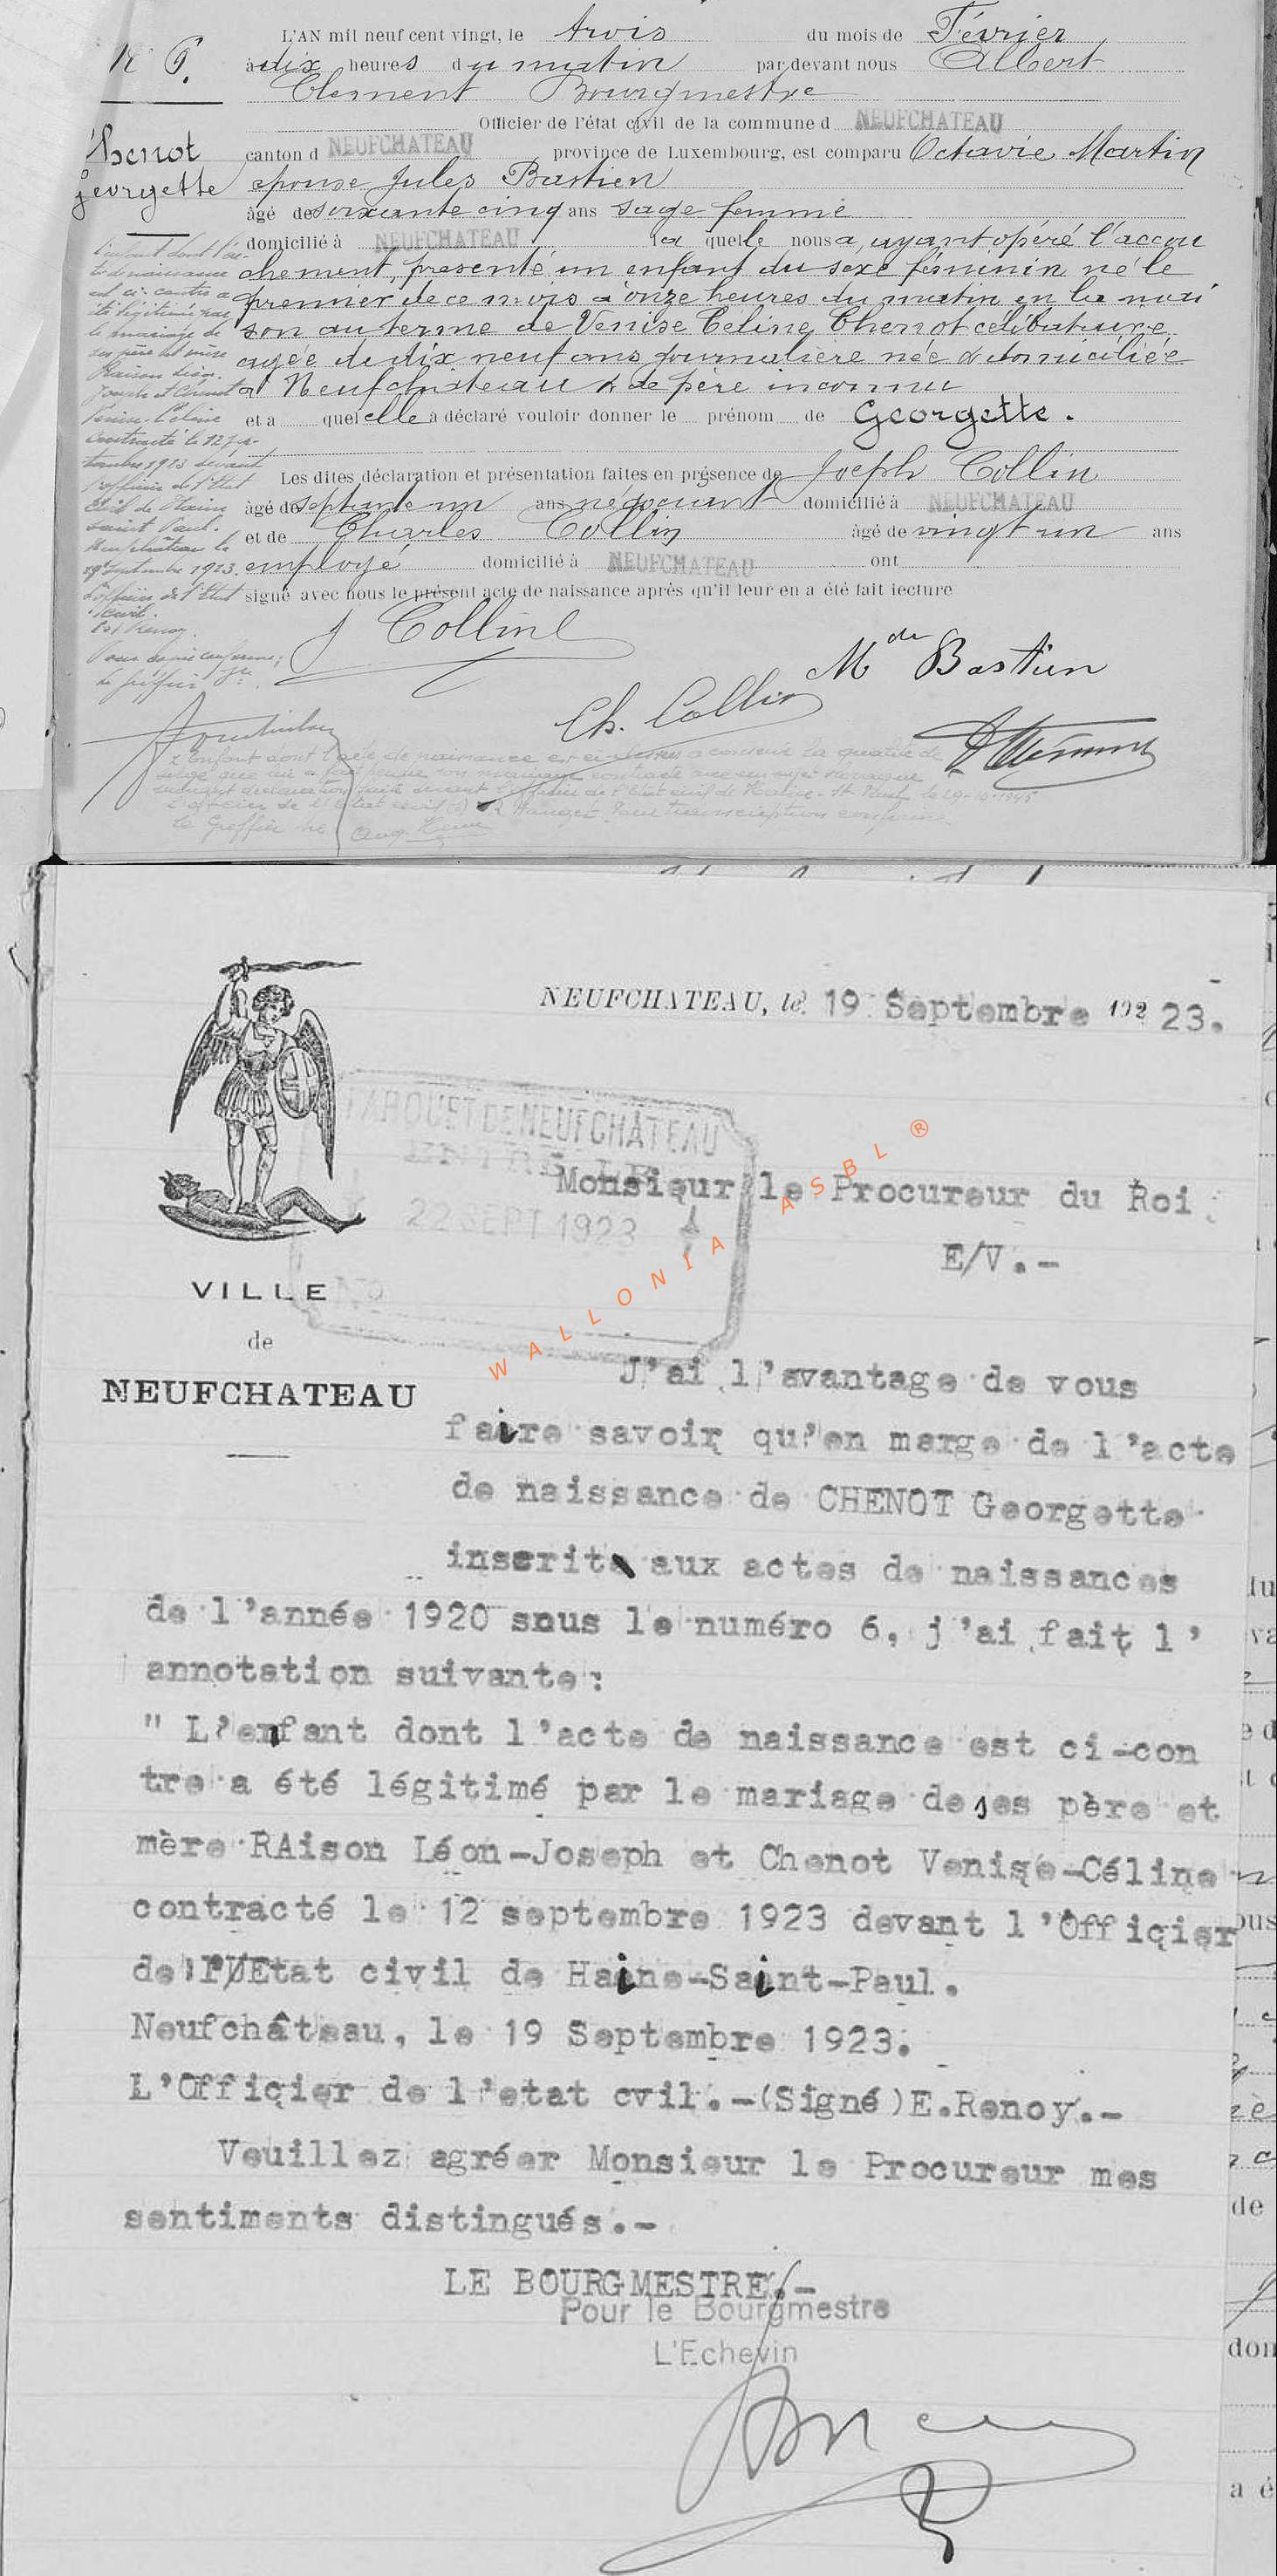 N° 6.
Chenot
Georgette
L'AN mil neuf cent vingt, le trois du mois de Février
à dix heures du matin par devant nous Albert
Clement Bourgmestre
Officier de l'état civil de la commune d NEUFCHATEAU
canton d NEUFCHATEAU province de Luxembourg, est comparu Octavie Martin
epouse Jules Bastien
âgé de soixante cinq ans sage femme
domicilié à NEUFCHATEAU la quelle nous a, ayant opéré l'accou
chement, presenté un enfant du sexe féminin né le
premier de ce mois à onze heures du matin en la mai
son au terme de Venise Celine Chenot célibataire
agée de dix neuf ans journalière née & domiciliée
à Neufchateau & de père inconnu
et a quel elle a déclaré vouloir donner le prénom de Georgette.
Les dites déclaration et présentation faites en présence de Joseph Collin
âgé de septante un ans négociant domicilié à NEUFCHATEAU
et de Charles Collin âgé de vingt un ans
employé domicilié à NEUFCHATEAU ont
signé avec nous le présent acte de naissance après qu'il leur en a été fait lecture
L'enfant dont l'ac-
te de naissance
est ci-contre a
été légitimé par
le mariage de
ses père et mère
Raison Léon-
Joseph et Chenot
Venise-Céline
contracté le 12 sep-
tembre 1923 devant
l'officier de l'Etat
Civil de Haine
Saint Paul.
Neufchâteau le
19 Septembre 1923.
L'officier de l'Etat
civil.
E. Renoy.
Pour copie conforme;
Le greffier
J Collin
Mde Bastien
Ch. Collin
L'Enfant dont l'acte de naissance est ci-dessus a conservé la qualité de
belge que lui a fait perdre son mariage contracté avec un sujet
suivant déclaration faite devant l'officier de l'Etat civil de Haine-St Paul le 29-10-1945
Pour transcription conforme
Le Greffier
NEUFCHATEAU, le 19 Septembre 192 23.
PARQUET DE NEUFCHÂTEAU
ENTRÉ LE
22 SEPT 1923
No
Monsieur le Procureur du Roi
E/V.-
VILLE
de
NEUFCHATEAU
WALLONIA ASBL ®
J'ai l'avantage de vous
faire savoir qu'en marge de l'acte
de naissance de CHENOT Georgette
inscrit aux actes de naissances
de l'année 1920 snus le numéro 6, j'ai fait l'
annotation suivante:
" L'enfant dont l'acte de naissance est ci-con
tre a été légitimé par le mariage de ses père et
mère RAison Léon-Joseph et Chenot Venise-Céline
contracté le 12 septembre 1923 devant l'Officier
de l'Etat civil de Haine-Saint-Paul.
Neufchâteau, le 19 Septembre 1923.
L'Officier de l'etat cvil.-(Signé)E.Renoy.-
Veuillez agréer Monsieur le Procureur mes
sentiments distingués.-
LE BOURGMESTRE.-
Pour le Bourgmestre
L'Echevin